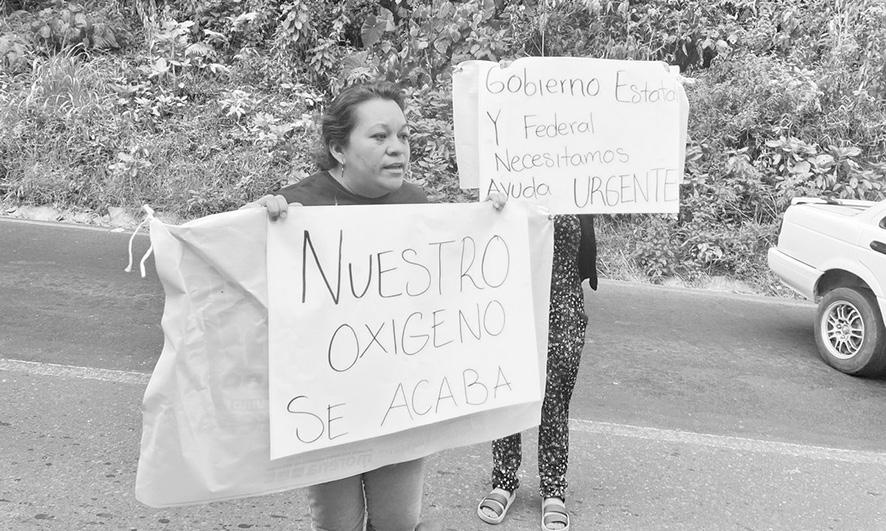 Gobierno Estatal
Y Federal
Necesitamos
Ayuda URGENTE
NUESTRO
OXIGENO
SE ACABA
morena